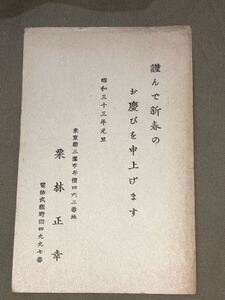 謹んで新春の
お慶びを申上げます
昭和三十三年元旦
東京都三鷹市牟禮四六三番地
栗林正幸
電話武蔵野㈣四九九七番